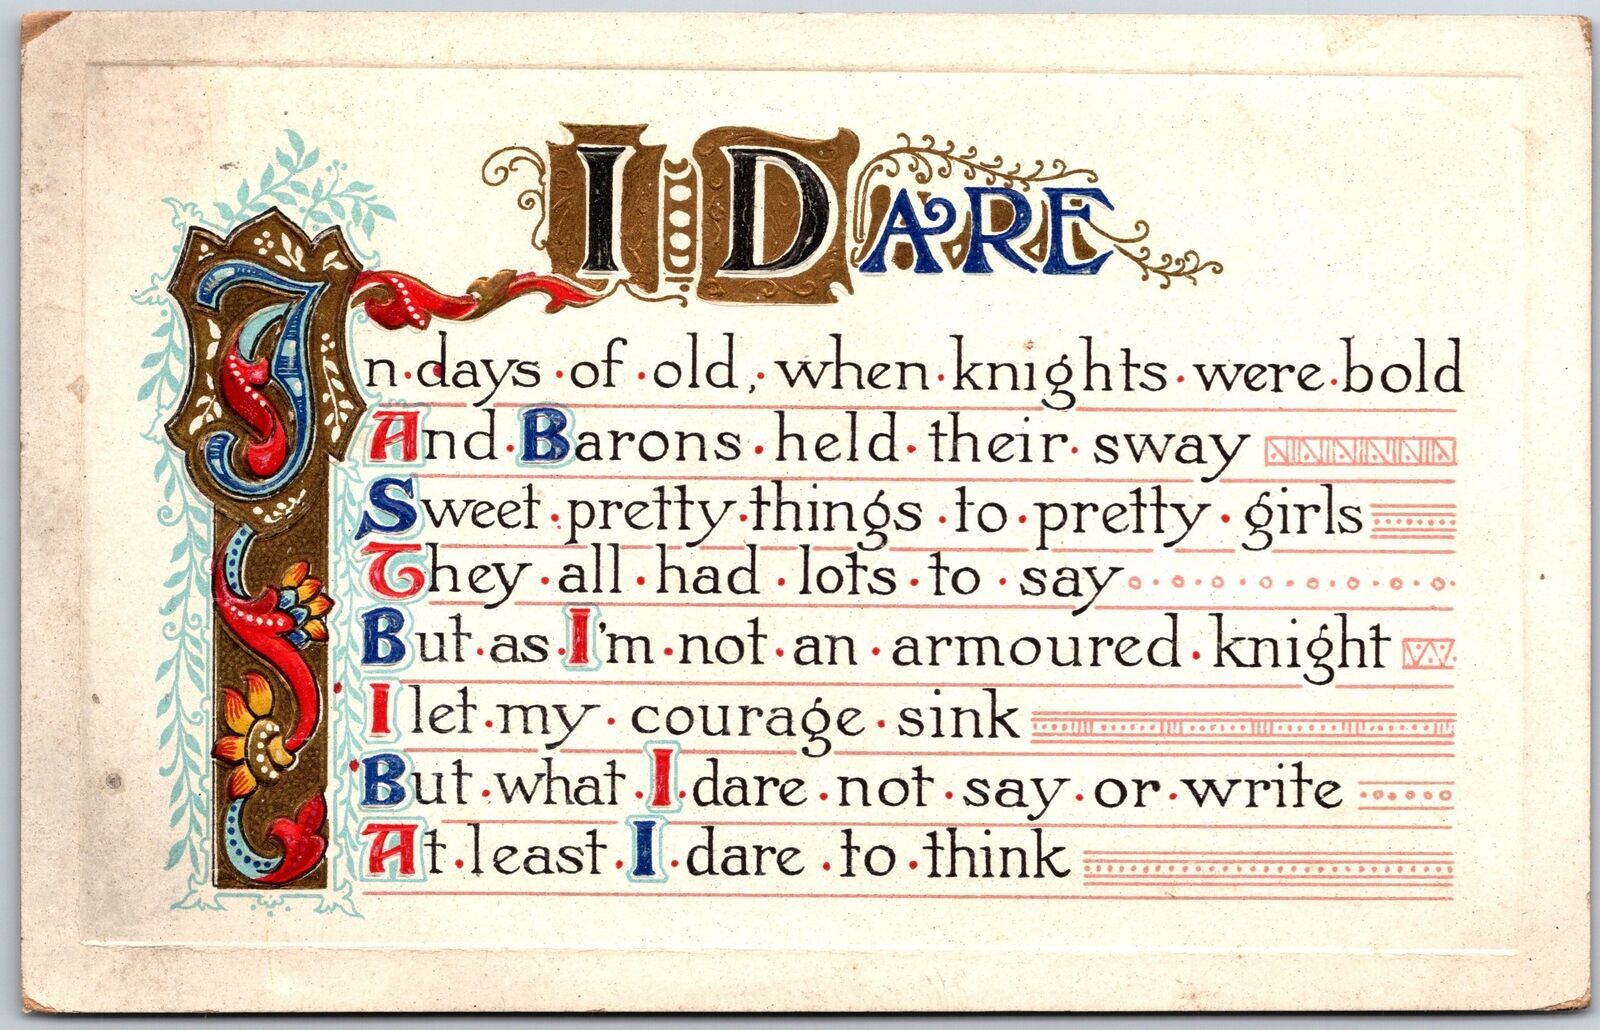 I DARE
In days of old, when knights were bold
And Barons held their sway
Sweet pretty things to pretty girls
They all had lots to say
But as I'm not an armoured knight
I let my courage sink
But what I dare not say or write
At least I dare to think